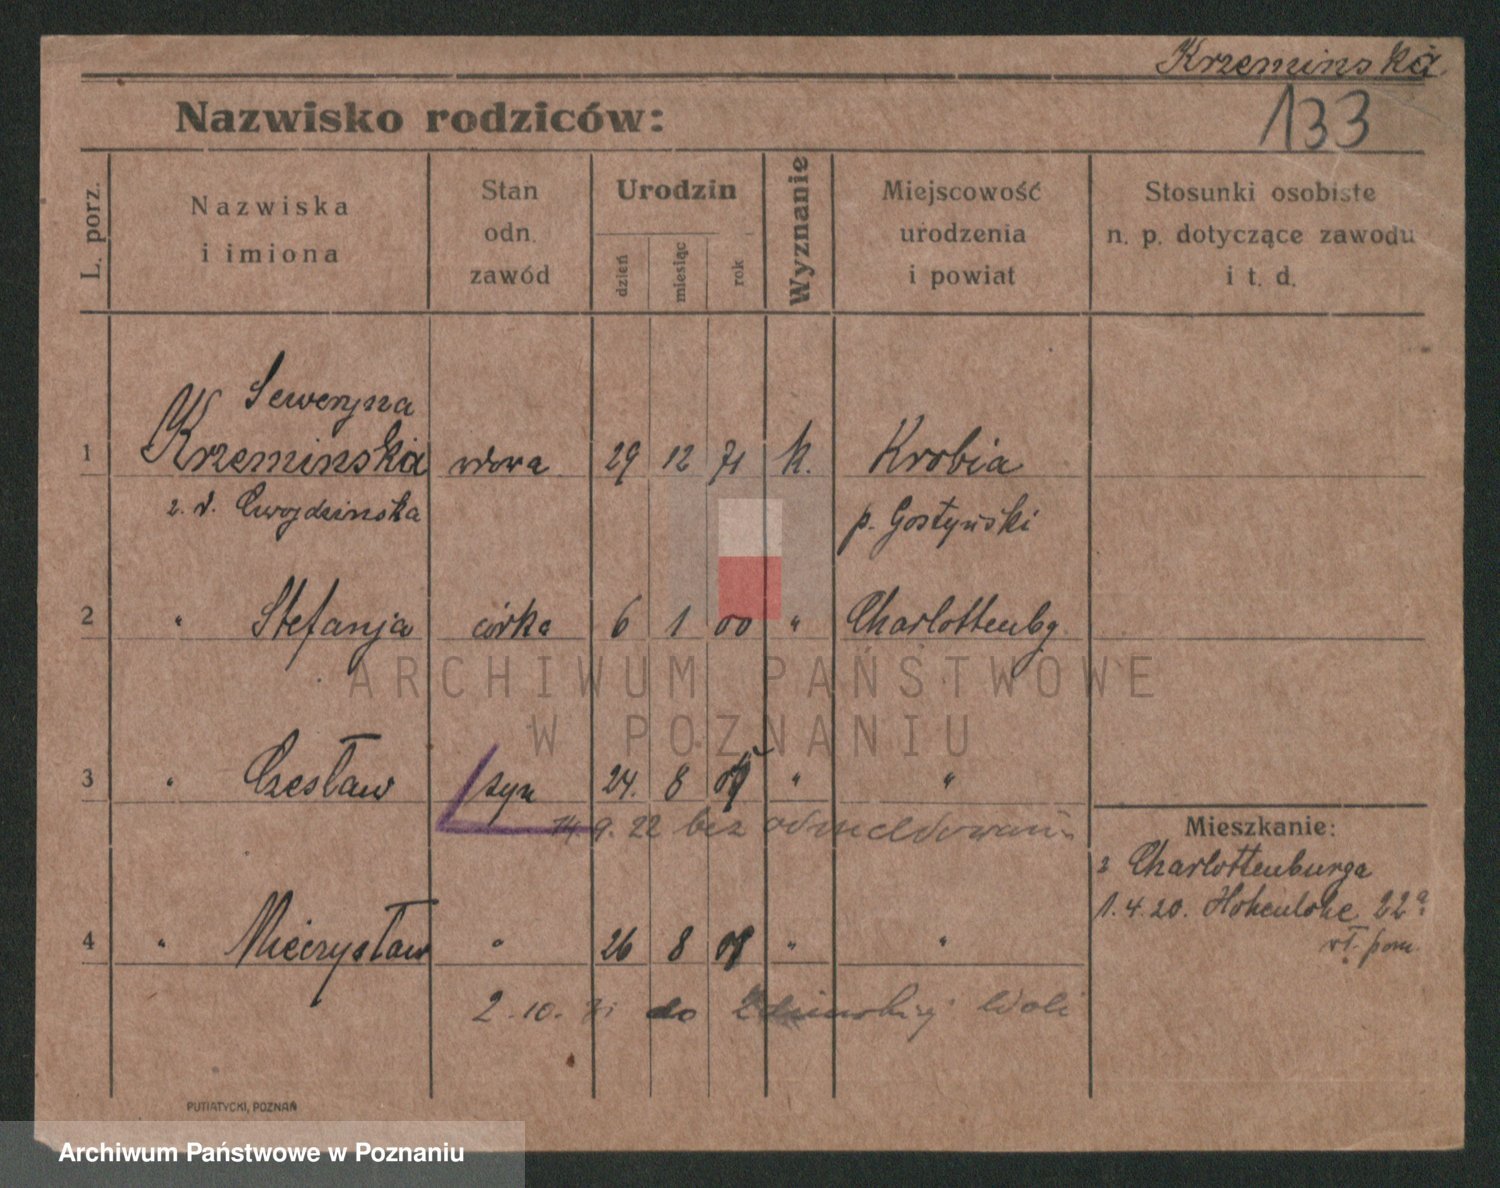 Krzeminska
133
Nazwisko rodziców:
L. porz.
Nazwiska
i imiona
Stan
odn.
zawód
Urodzin
dzień
miesiąc
rok
Wyznanie
Miejscowość
urodzenia
i powiat
Stosunki osobiste
n. p. dotyczące zawodu
i t. d.
Seweryna
1 Krzeminska wdowa 29 12 71 k. Krobia
z. d. Cwojdzinska p. Gostyński
2 " Stefanja córka 6 1 00 " Charlottenbg.
ARCHIWUM PAŃSTWOWE
W POZNANIU
3 " Czesław syn 24. 8 " "
14.9.22 bez odmeldowania
Mieszkanie:
z Charlottenburga
1.4.20. Hohenlohe 22a
4 " Mieczysław " 26 8 " "
wł. pom.
2.10.31 do Zdunskiej Woli
PUTIATYCKI, POZNAŃ
Archiwum Państwowe w Poznaniu